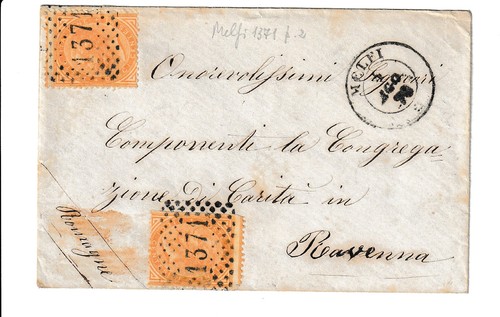 Melfi 1371 p. 2
1371
MELFI
AGO
Onorevolissimi Signori
Componenti la Congrega-
zione Di Carità in
Ravenna
Romagne
1371